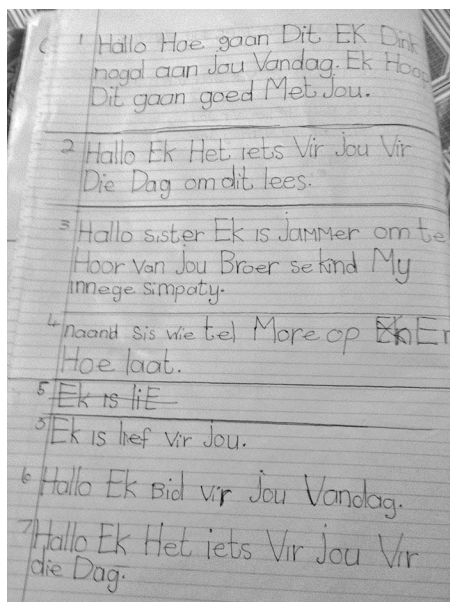 1 Hallo Hoe gaan Dit Ek Dink
nogal aan Jou Vandag. Ek Hoop
Dit gaan goed Met Jou.
2 Hallo Ek Het iets Vir Jou Vir
Die Dag om dit lees.
3 Hallo sister Ek is Jammer om te
Hoor van Jou Broer se kind My
innege simpaty.
4 naand sis wie tel More op En
Hoe laat.
5 Ek is liE
5 Ek is lief Vir Jou.
6 Hallo Ek Bid vir Jou Vandag.
7 Hallo Ek Het iets Vir Jou Vir
die Dag.